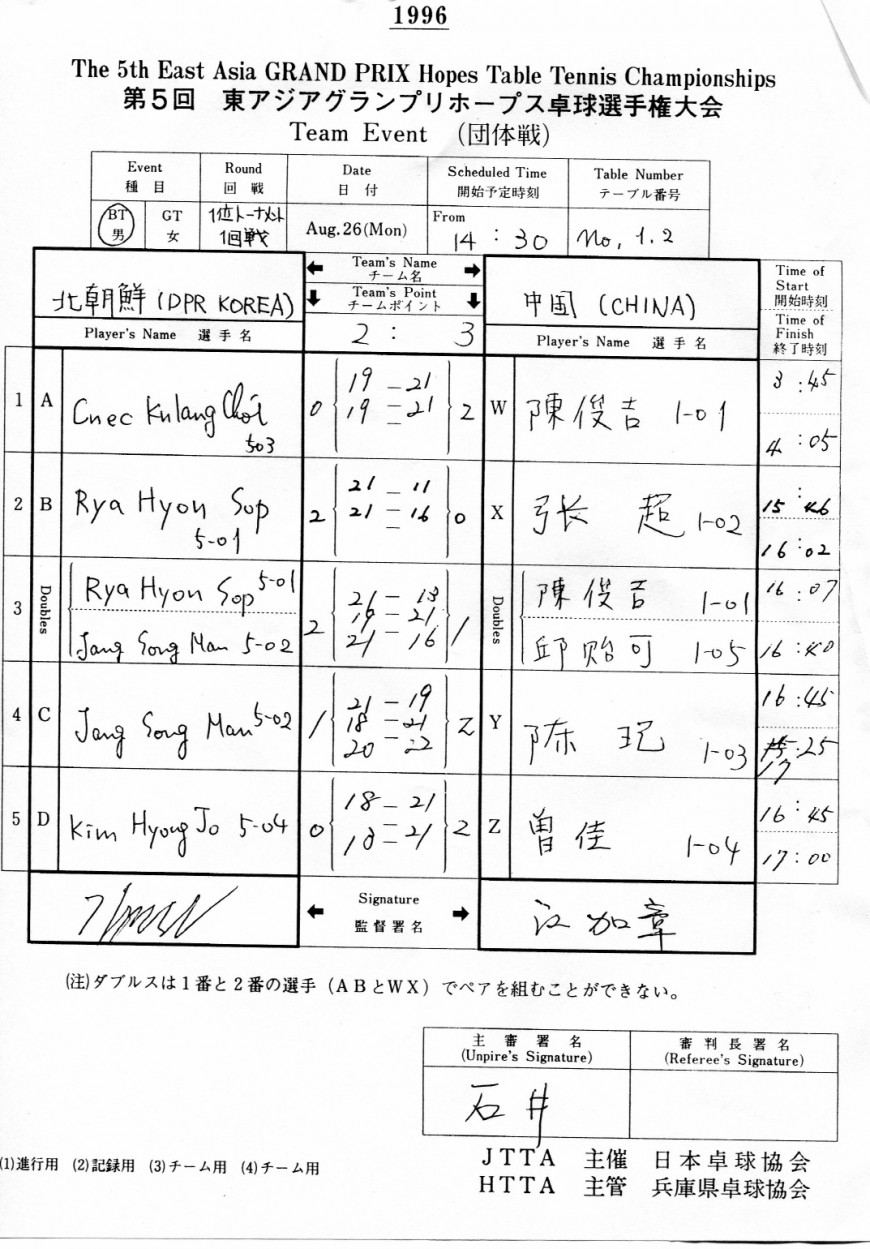 1996
The 5th East Asia GRAND PRIX Hopes Table Tennis Championships
第5回 東アジアグランプリホープス卓球選手権大会
Team Event (団体戦)
Event Round Date Scheduled Time Table Number
種目 回戦 日付 開始予定時刻 テーブル番号
BT 男 GT 女 1位トーナメント 1回戦 Aug.26(Mon) From 14:30 No, 1.2
北朝鮮(DPR KOREA) Team's Name チーム名 中国 (CHINA) Time of Start 開始時刻
Team's Point チームポイント
Player's Name 選手名 2 : 3 Player's Name 選手名 Time of Finish 終了時刻
1 A Choi 503 0 19-21 19-21 - 2 W 陳俊吉 1-01 3:45 4:05
2 B Rya Hyon Sop 5-01 2 21-11 21-16 - 0 X 张 超 1-02 15:46 16:02
3 Doubles Rya Hyon Sop 5-01 2 21-13 19-21 21-16 1 Doubles 陳俊吉 1-01 16:07
Jang Song Man 5-02 邱贻可 1-05 16:40
4 C Jang Song Man 5-02 1 21-19 18-21 20-22 2 Y 陈 玘 1-03 16:45 17:25
5 D Kim Hyong Jo 5-04 0 18-21 18-21 - 2 Z 曽佳 1-04 16:45 17:00
Signature
監督署名 江加章
(注)ダブルスは1番と2番の選手(ABとWX)でペアを組むことができない。
主審署名 (Unpire's Signature) 審判長署名 (Referee's Signature)
石井
(1)進行用 (2)記録用 (3)チーム用 (4)チーム用
JTTA 主催 日本卓球協会
HTTA 主管 兵庫県卓球協会